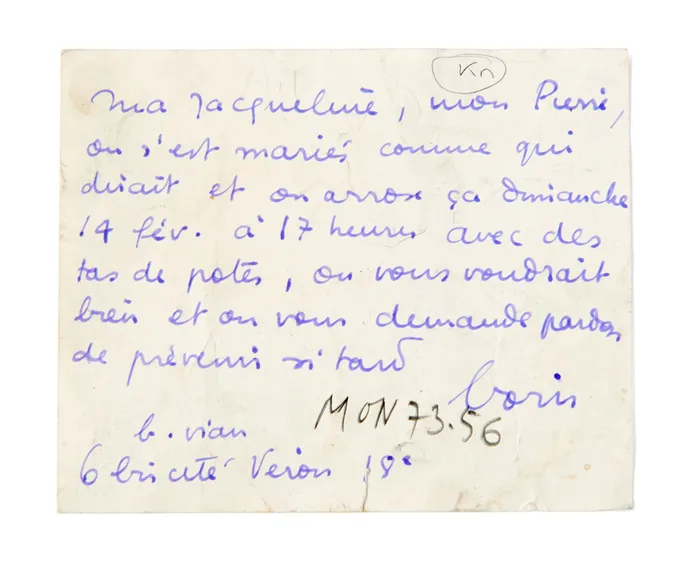 Kn
ma Jacqueline, mon Pierre,
on s'est mariés comme qui
dirait et on arrose ça dimanche
14 fév. à 17 heures avec des
tas de potes, on vous voudrait
bien et on vous demande pardon
de prévenir si tard
boris
MON 73.56
b. vian
6 bis cité Veron 18e